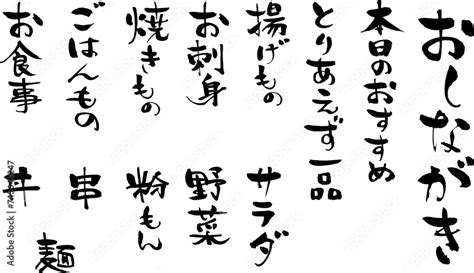 おしながき
本日のおすすめ
とりあえず一品
揚げもの
サラダ
お刺身
野菜
焼きもの
粉もん
ごはんもの
串
お食事
丼
麺
Adobe Stock